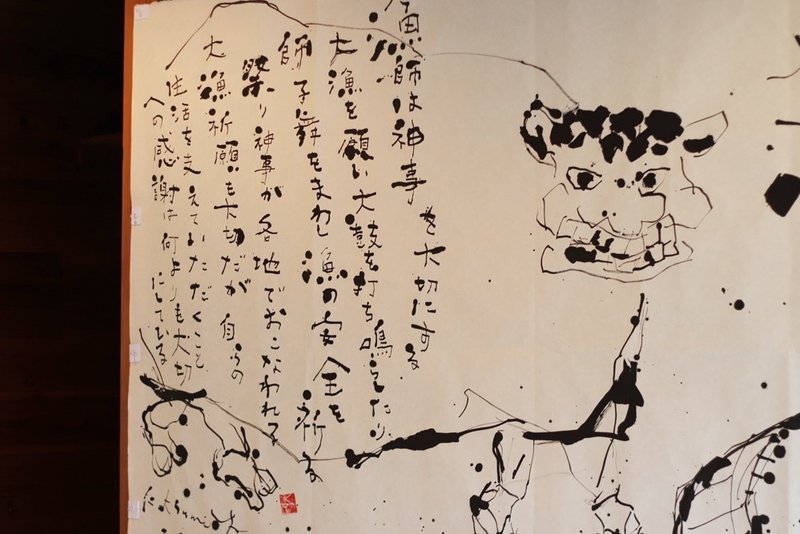 漁師は神事を大切にする
大漁を願い大鼓を打ち鳴らしたり
師子舞をまわし漁の安全を祈る
祭り神事が各地でおこなわれてる
大漁祈願も大切だが自らの
生活を支えていただくこと
への感謝は何よりも大切
にしている